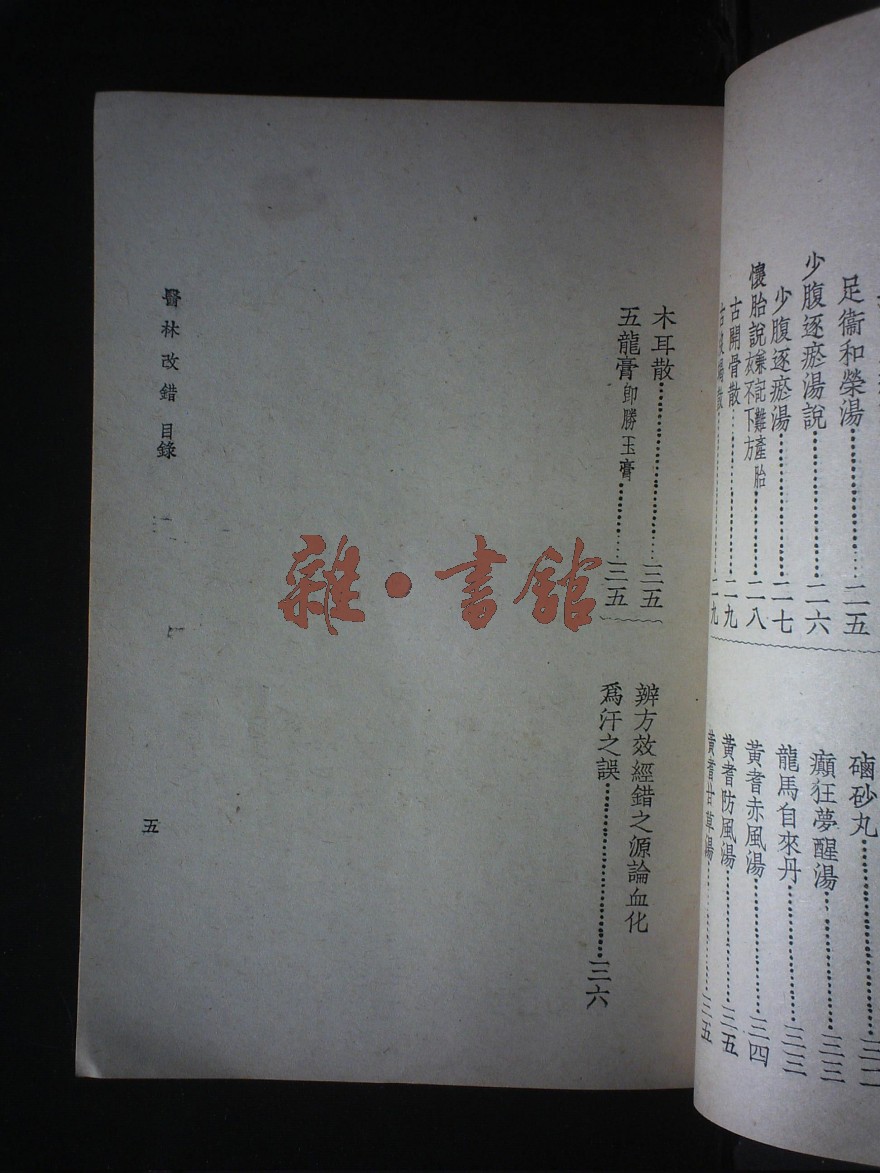 足衞和榮湯……二五
少腹逐瘀湯說……二六
少腹逐瘀湯……二七
懷胎說兼記難產胎衣不下方……二八
古開骨散……二九
硇砂丸……
癲狂夢醒湯……三三
龍馬自來丹……三三
黃耆赤風湯……三四
黃耆防風湯……三五
黃耆甘草湯……三五
木耳散……三五
五龍膏卽勝玉膏……三五
辨方效經錯之源論血化
爲汗之誤……三六
醫林改錯 目錄
五
雜·書館